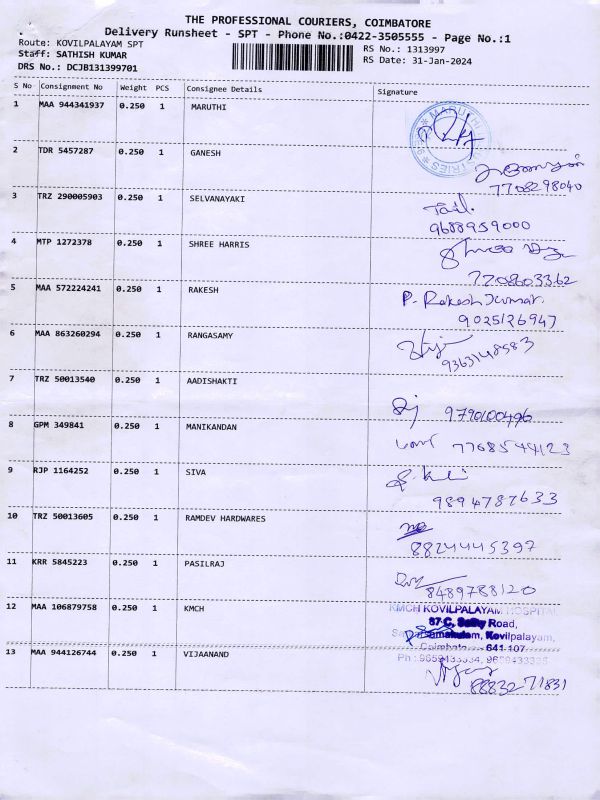 THE PROFESSIONAL COURIERS, COIMBATORE
Delivery Runsheet - SPT - Phone No.:0422-3505555 - Page No.:1
Route: KOVILPALAYAM SPT
RS No.: 1313997
Staff: SATHISH KUMAR
RS Date: 31-Jan-2024
DRS No.: DCJB131399701
S No Consignment No Weight PCS Consignee Details Signature
1 MAA 944341937 0.250 1 MARUTHI
2 TDR 5457287 0.250 1 GANESH
7708298040
3 TRZ 290005903 0.250 1 SELVANAYAKI
9688959000
4 MTP 1272378 0.250 1 SHREE HARRIS
7208603362
5 MAA 572224241 0.250 1 RAKESH P. Rakesh Kumar.
9025126947
6 MAA 863260294 0.250 1 RANGASAMY
9363148583
7 TRZ 50013540 0.250 1 AADISHAKTI
9790100496
8 GPM 349841 0.250 1 MANIKANDAN
7768544123
9 RJP 1164252 0.250 1 SIVA
9894787633
10 TRZ 50013605 0.250 1 RAMDEV HARDWARES
8824445397
11 KRR 5845223 0.250 1 PASILRAJ
8489788120
12 MAA 106879758 0.250 1 KMCH KMCH KOVILPALAYAM HOSPITAL
Road,
Kovilpalayam,
Coimbatore - 641 107
13 MAA 944126744 0.250 1 VIJAANAND
88832 71831